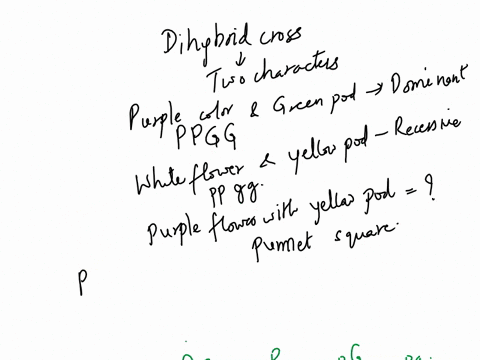 Dihybrid cross
↓
Two characters
Purple color & Green pod → Dominant
PPGG
White flower & yellow pod - Recessive
pp gg.
Purple flower with yellow pod = ?
punnet square.
P